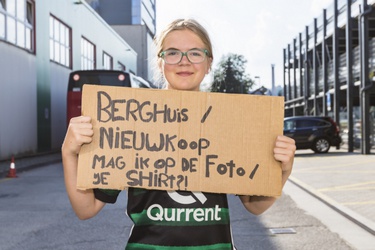 BERGHUIS /
NIEUWKOOP
MAG IK OP DE FOTO /
JE SHIRT?!
Qurrent